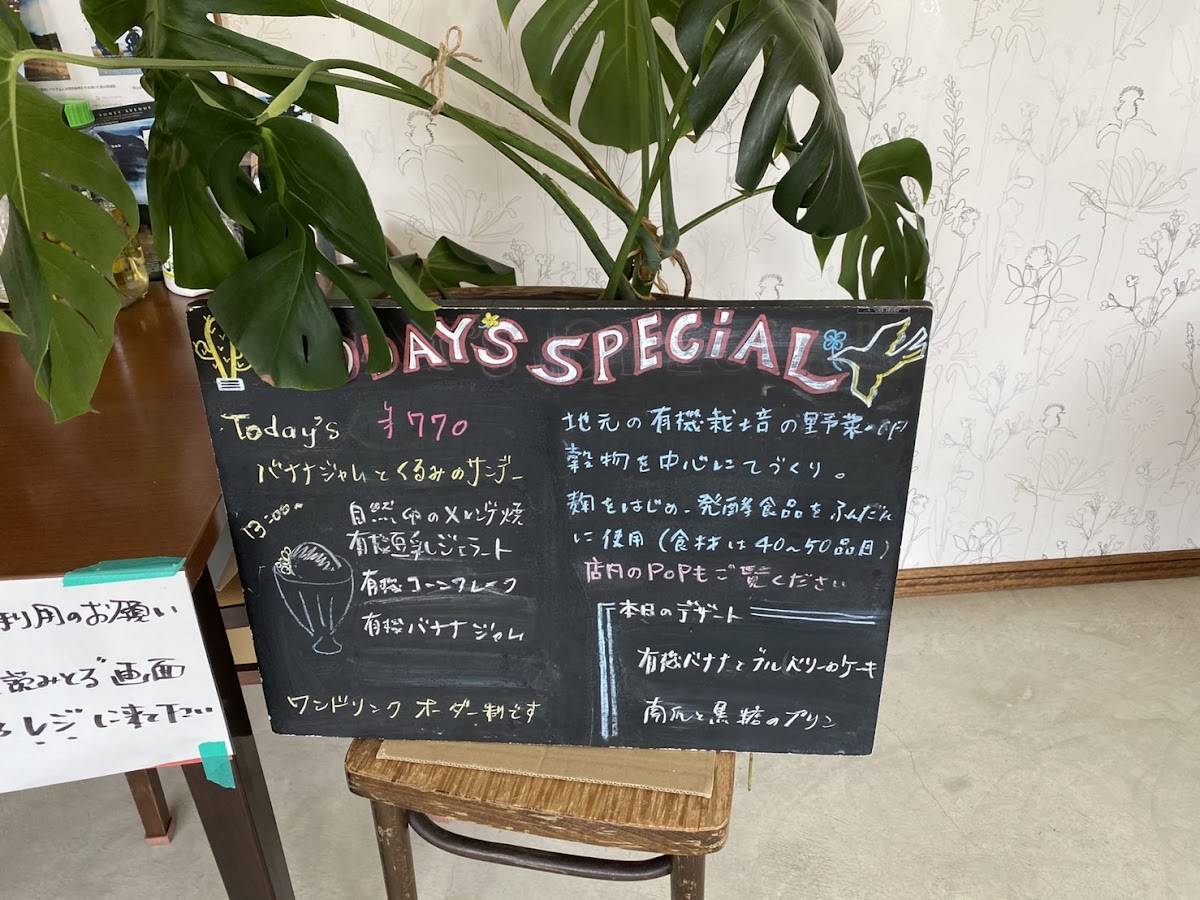 TODAY'S SPECIAL
Today's ¥770
バナナジャムとくるみのサンデー
13:00〜
自然卵のメレンゲ焼
有機豆乳ジェラート
有機コーンフレーク
有機バナナジャム
ワンドリンク オーダー制です
地元の有機栽培の野菜・
穀物を中心にてづくり。
麹をはじめ、発酵食品をふんだん
に使用(食材は40〜50品目)
店内のPOPもご覧ください
本日のデザート
有機バナナとブルーベリーのケーキ
南瓜と黒糖のプリン
利用のお願い
読みとる画面
レジに来て下さい